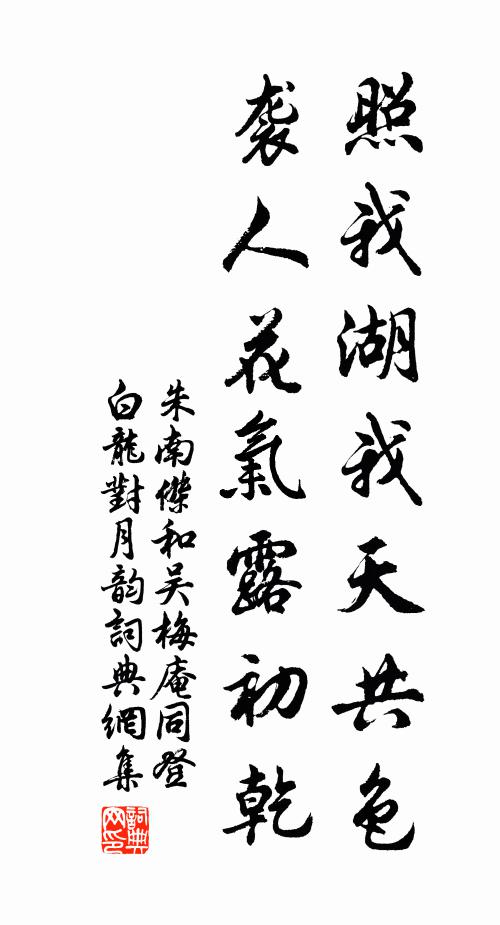 照我湖我天共色
袭人花氣露初乾
朱南傑和吴梅庵同登
白龍對月韵詞典網集
詞典
网印